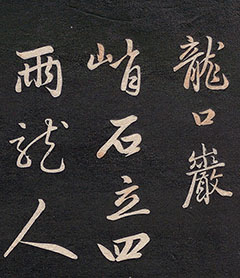 龍口巖
峭石立四
兩龍人